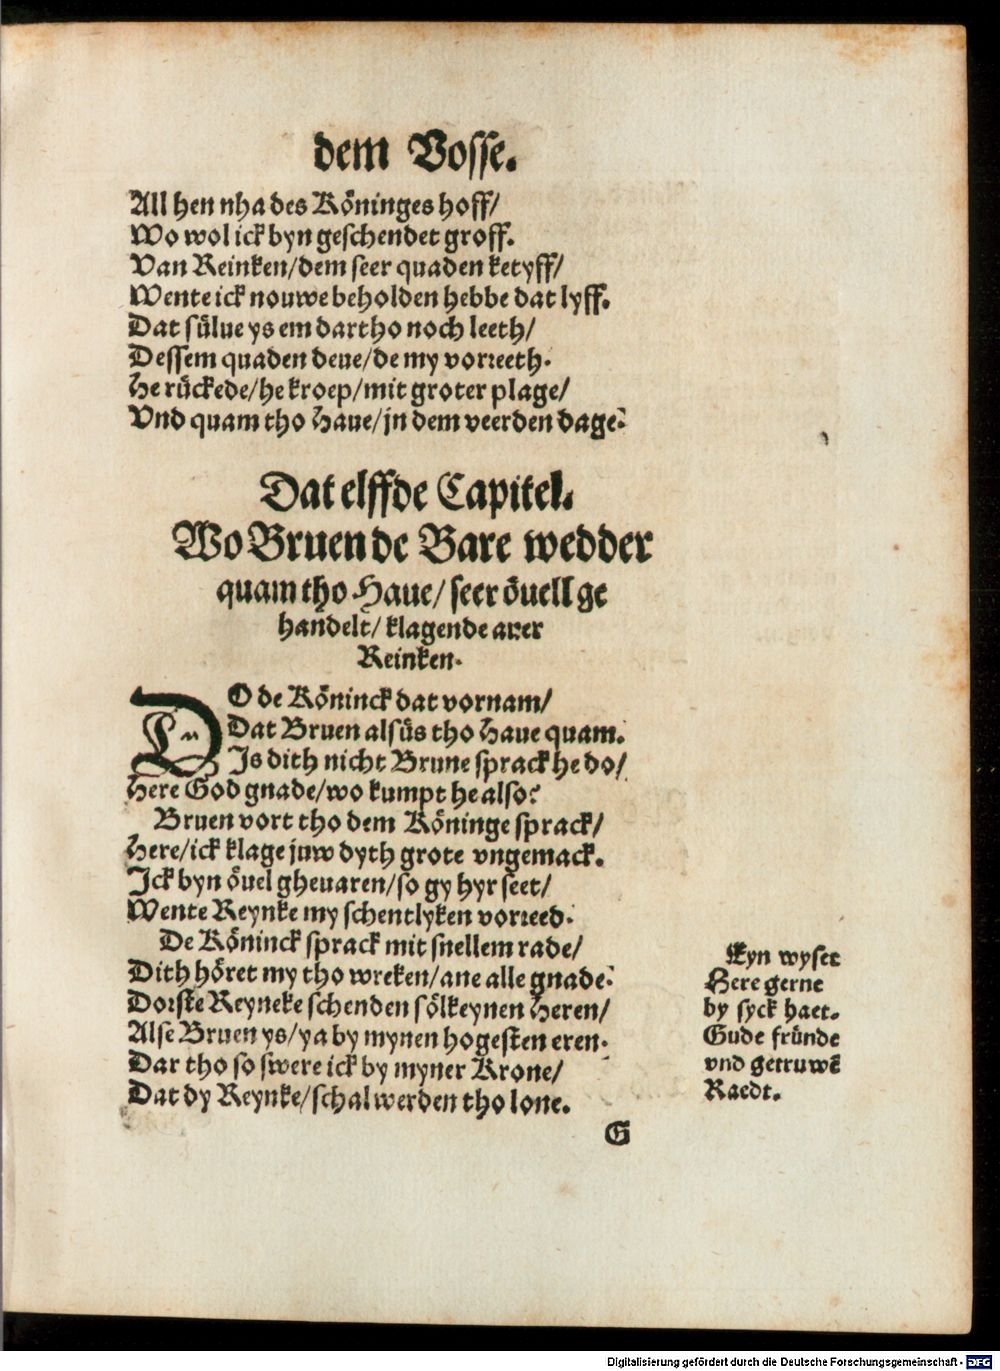 dem Vosse.
All hen nha des Köninges hoff/
Wo wol ick byn geschendet groff.
Van Reinken/dem seer quaden ketyff/
Wente ick nouwe beholden hebbe dat lyff.
Dat sülue ys em dartho noch leeth/
Dessem quaden deue/de my vorreeth.
He rückede/he kroep/mit groter plage/
Vnd quam tho Haue/jn dem veerden dage.
Dat elffde Capitel.
Wo Bruen de Bare wedder
quam tho Haue/ seer övell ge
handelt/ klagende auer
Reinken.
DO de Köninck dat vornam/
Dat Bruen alsüs tho Haue quam.
Is dith nicht Brune sprack he do/
Here God gnade/wo kumpt he also?
Bruen vort tho dem Köninge sprack/
Here/ick klage juw dyth grote vngemack.
Ick byn övel gheuaren/so gy hyr seet/
Wente Reynke my schentlyken vorreed.
De Köninck sprack mit snellem rade/
Dith höret my tho wreken/ane alle gnade.
Dorste Reyneke schenden sölkeynen Heren/
Alse Bruen ys/ya by mynen hogesten eren.
Dar tho so swere ick by myner Krone/
Dat dy Reynke/schal werden tho lone.
Eyn wyser
Here gerne
by syck haet.
Gude fründe
vnd getruwē
Raedt.
G
Digitalisierung gefördert durch die Deutsche Forschungsgemeinschaft - DFG